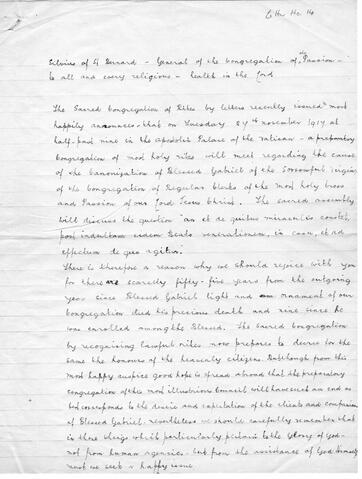 Silvius of St Bernard - General of the Congregation of the Passion -
to all and every religious - health in the Lord
The Sacred Congregation of Rites by letters recently issued most
happily announces - that on Tuesday 27th November 1917 at
half-past nine in the apostolic Palace of the Vatican - a preparatory
Congregation of most holy rites will meet regarding the cause
of the Canonization of Blessed Gabriel of the Sorrowful Virgin
of the Congregation of Regular Clerks of the most holy Cross
and Passion of our Lord Jesus Christ. The sacred assembly
will discuss the question "an et de quibus miraculis constet,
post indultam eidem Beato venerationem, in casu, et ad
effectum de quo agitur.
There is therefore a reason why we should rejoice with you
for there are scarcely fifty-five years from the outgoing
years since Blessed Gabriel light and ornament of our
Congregation died his precious death and nine since he
was enrolled amongst the Blessed. The Sacred Congregation
by recognising lawful rites now prepares to decree for the
same the honours of the heavenly citizens. But though from this
most happy auspice good hope is spread abroad that the preparatory
congregation of this most illustrious Council will have such an end as
to correspond to the desire and expectation of the clients and
of Blessed Gabriel: nevertheless we should carefully remember that
in these things which particularly pertain to the Glory of God -
not from human agencies - but from the assistance of God Himself
must we seek a happy issue